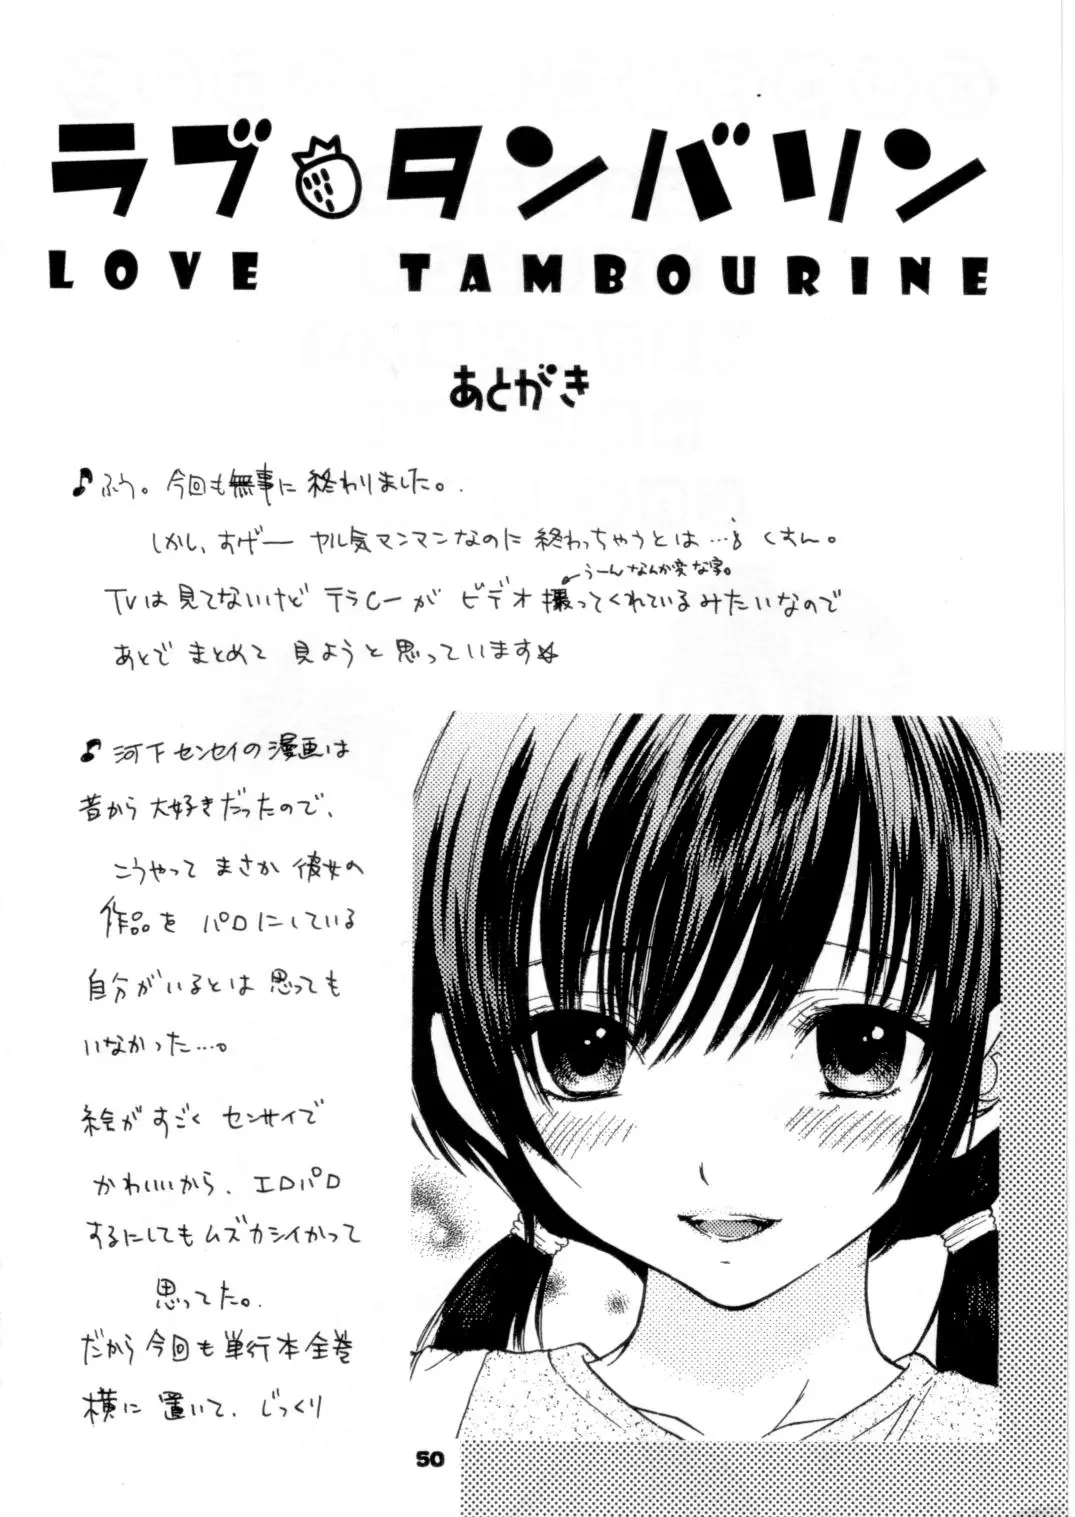 ラブ タンバリン
LOVE TAMBOURINE
あとがき
♪ふう。今回も無事に終わりました。
しかし、すげー ヤル気マンマンなのに 終わっちゃうとは…。くすん。
うーんなんか変な字。
TVは見てないけど テラCーが ビデオ撮ってくれているみたいなので
あとで まとめて 見ようと思っています☆
♪河下センセイの漫画は
昔から大好きだったので、
こうやって まさか 彼女の
作品を パロにしている
自分がいるとは 思っても
いなかった…。
絵がすごく センサイで
かわいいから、エロパロ
するにしてもムズカシイかって
思ってた。
だから今回も単行本全巻
横に置いて、じっくり
50